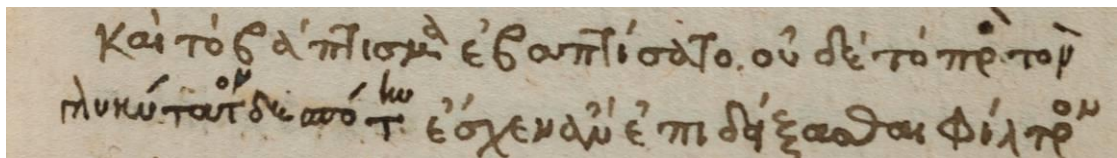 καὶ τὸ βάπτισμα ἐβαπτίσατο. οὐδὲ τὸ πρὸς τὸν
γλυκύτατον δεσπότην ἔσχεν ἂν ἐπιδείξασθαι φίλτρον